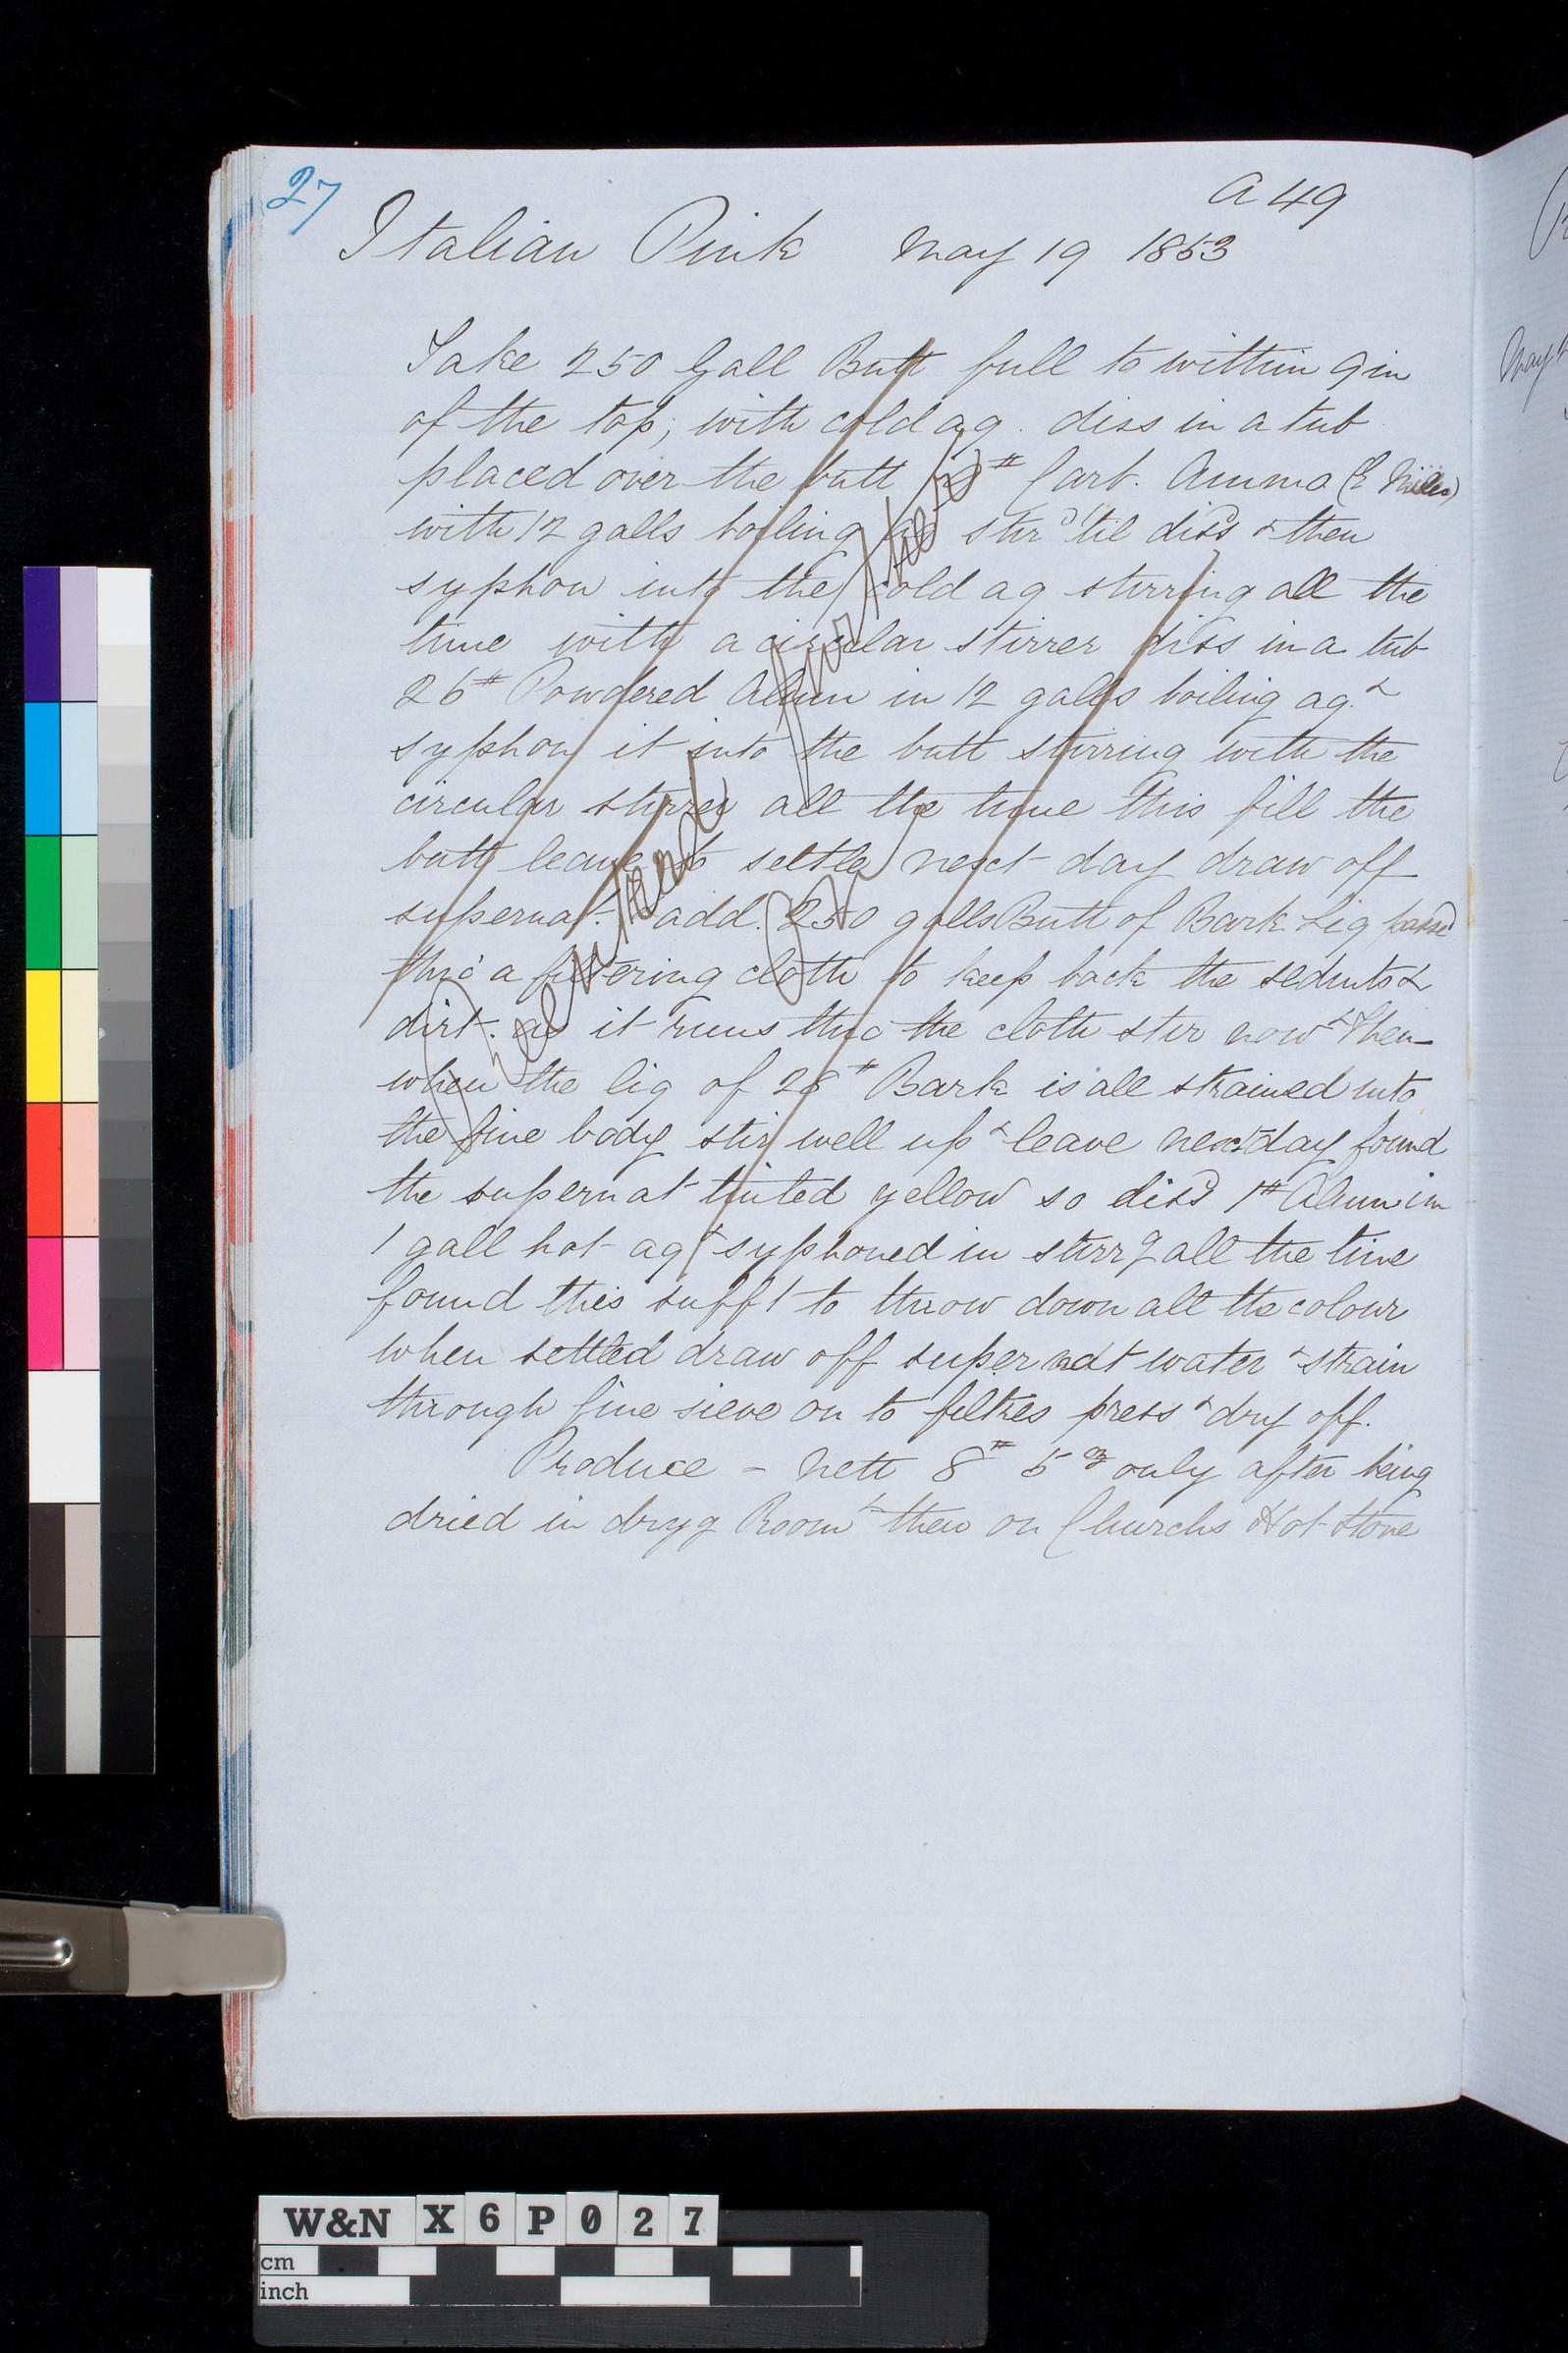 27
A 49
Italian Pink May 19 1853
Take 250 Gall Butt full to within 9 in
of the top, with cold aq. diss in a tub
placed over the butt # Carb. Ammo (E
with 12 galls boiling aq stird 'til dissd & then
syphon into the cold aq stirring all the
time with a circular stirrer diss in a tub
26# Powdered Alum in 12 galls boiling aq. &
syphon it into the butt stirring with the
circular stirrer all the time this fill the
butt leave to settle next day draw off
supernat. add. 250 galls Butt of Bark Liq passd
thro' a filtering cloth to keep back the sedmts &
dirt. as it runs thro the cloth stir now & then
when the liq of 28# Bark is all strained into
the fine body stir well up & leave next day found
the supernat tinted yellow so dissd 1# Alum in
1 gall hot aq & syphoned in stirrg all the time
found this sufft to throw down all the colour
when settled draw off supernat water & strain
through fine sieve on to filtres press & dry off.
Produce - nett 8# 5 oz only after being
dried in dryg Room & then on Churchs Hot Stone
W&N X6P027
cm
inch